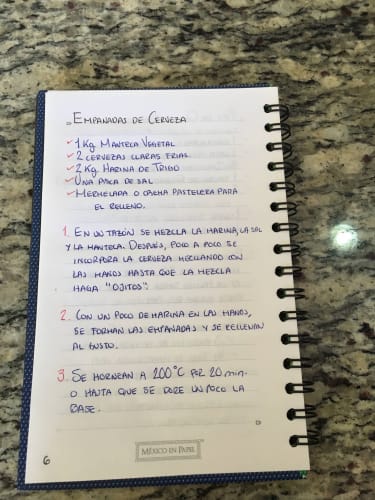 Empanadas de Cerveza
✓1 Kg Manteca Vegetal
✓2 cervezas claras frías.
✓2 Kg Harina de Trigo
✓Una pizca de sal
✓Mermelada o crema pastelera para
el relleno.
1. En un tazón se mezcla la harina, la sal
y la manteca. Después, poco a poco se
incorpora la cerveza mezclando con
las manos hasta que la mezcla
haga "ojitos".
2. Con un poco de harina en las manos,
se forman las empanadas y se rellenan
al gusto.
3. Se hornean a 200°C por 20 min.
o hasta que se dore un poco la
base.
México en Papel
6